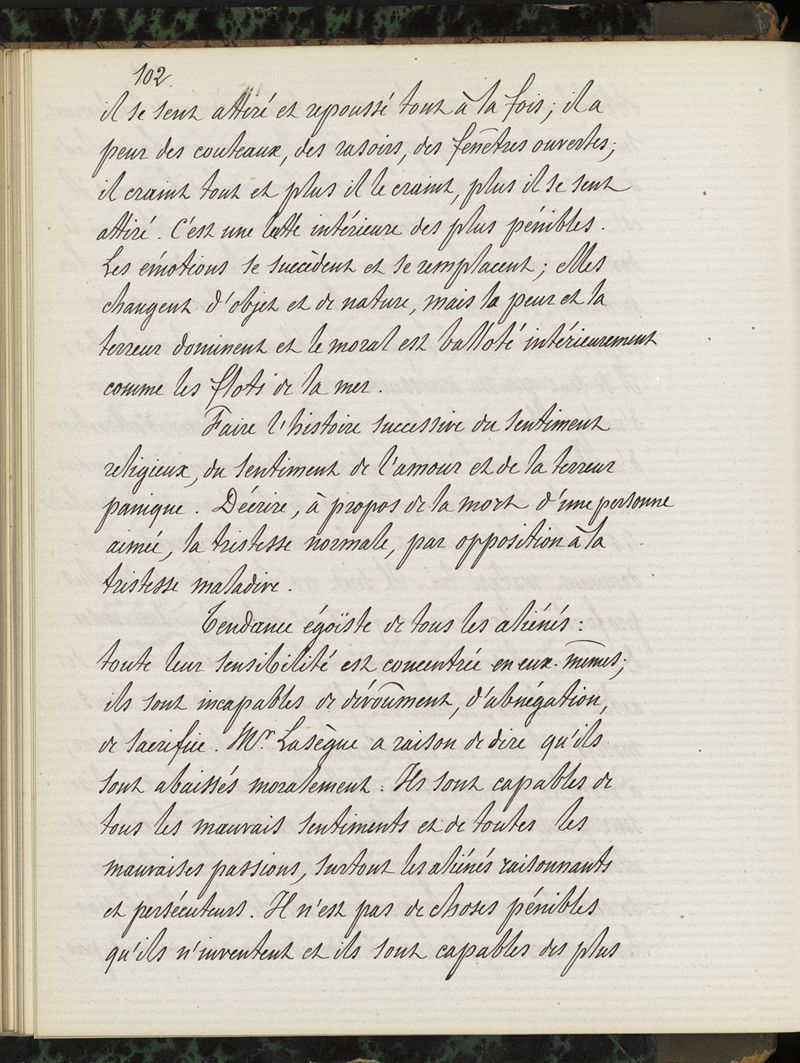 102
il se sent attiré et repoussé tout à la fois ; il a
peur des couteaux, des rasoirs, des fenêtres ouvertes ;
il craint tout et plus il le craint, plus il se sent
attiré. C'est une lutte intérieure des plus pénibles.
Les émotions se succèdent et se remplacent ; elles
changent d'objet et de nature, mais la peur et la
terreur dominent et le moral est balloté intérieurement
comme les flots de la mer.
Faire l'histoire successive du sentiment
religieux, du sentiment de l'amour et de la terreur
panique. Décrire, à propos de la mort d'une personne
aimée, la tristesse normale, par opposition à la
tristesse maladive.
Tendance égoïste de tous les aliénés :
toute leur sensibilité est concentrée en eux-mêmes ;
ils sont incapables de dévoûment, d'abnégation,
de sacrifice. Mr Lasègue a raison de dire qu'ils
sont abaissés moralement : Ils sont capables de
tous les mauvais sentiments et de toutes les
mauvaises passions, surtout les aliénés raisonnants
et persécuteurs. Il n'est pas de choses pénibles
qu'ils n'inventent et ils sont capables des plus